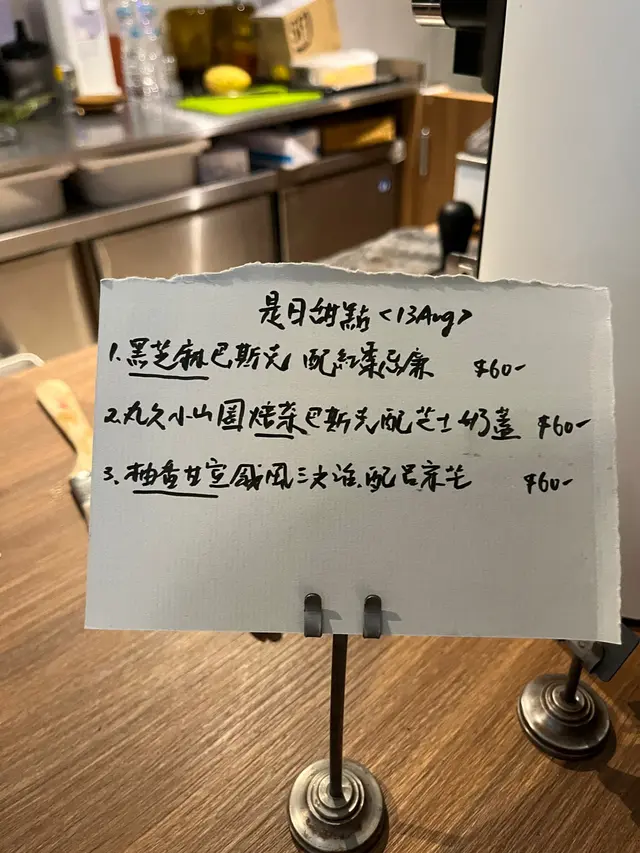 是日甜點 <13Aug>
1. 黑芝麻巴斯克 配紅棗忌廉 $60-
2. 丸久小山園焙茶巴斯克配芝士奶蓋 $60-
3. 柚香甘宣戚風三文治配呂宋芒 $60-